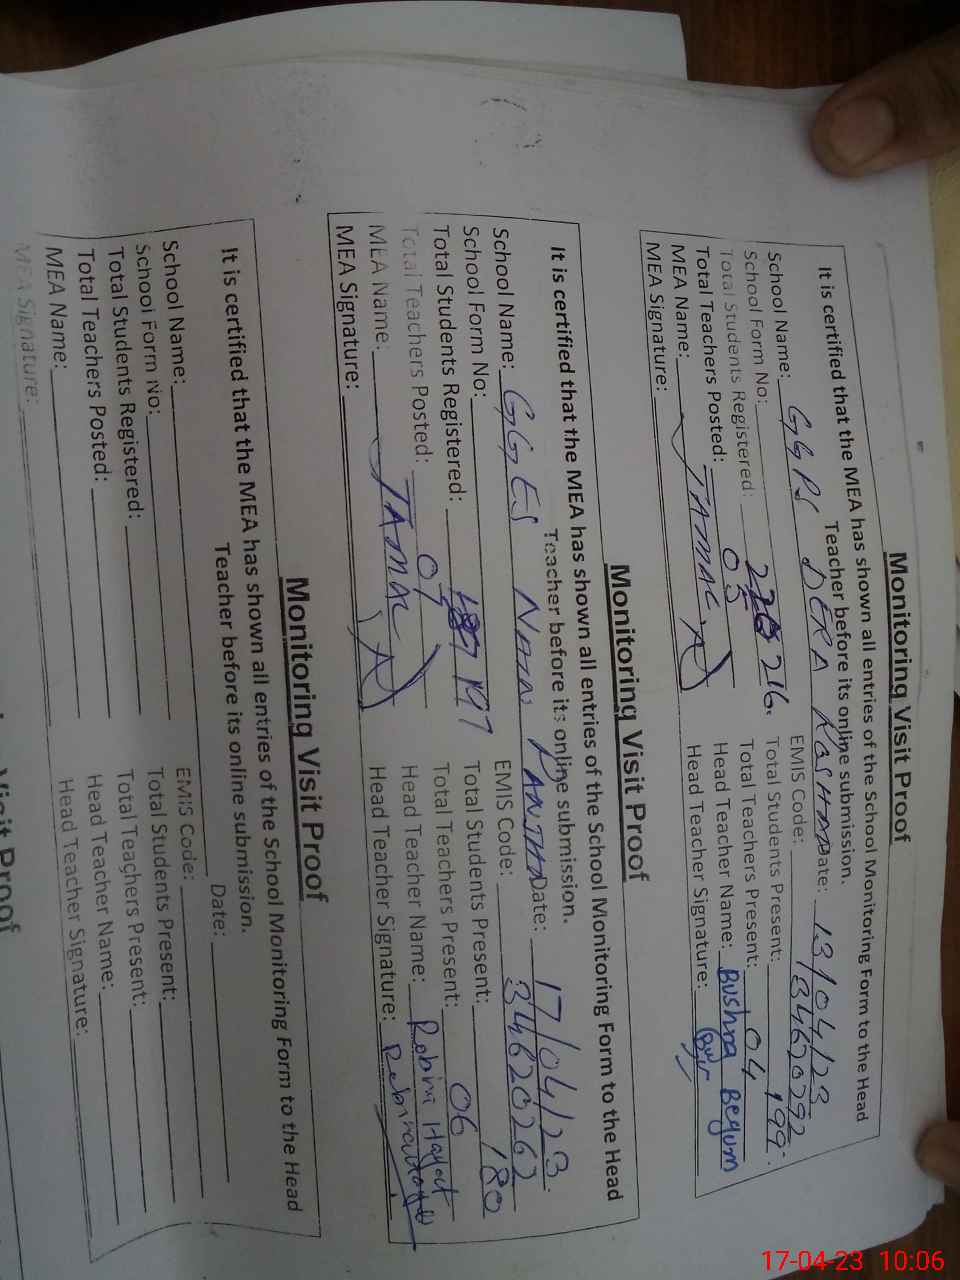 Monitoring Visit Proof
It is certified that the MEA has shown all entries of the School Monitoring Form to the Head
Teacher before its online submission.
School Name: GGPS DERA Date: 13/04/23
School Form No: EMIS Code: 34620292
Total Students Registered: 216. Total Students Present: 199
Total Teachers Posted: 05 Total Teachers Present: 04
MEA Name: JAMAL Head Teacher Name: Bushra Begum
MEA Signature: Head Teacher Signature:
Monitoring Visit Proof
It is certified that the MEA has shown all entries of the School Monitoring Form to the Head
Teacher before its online submission.
School Name: GGES NAIN RANJHA Date: 17/04/23
School Form No: EMIS Code: 34620262
Total Students Registered: 197 Total Students Present: 180
Total Teachers Posted: 07 Total Teachers Present: 06
MEA Name: JAMAL Head Teacher Name: Robina Hayat
MEA Signature: Head Teacher Signature:
Monitoring Visit Proof
It is certified that the MEA has shown all entries of the School Monitoring Form to the Head
Teacher before its online submission.
School Name: Date:
School Form No: EMIS Code:
Total Students Registered: Total Students Present:
Total Teachers Posted: Total Teachers Present:
MEA Name: Head Teacher Name:
MEA Signature: Head Teacher Signature:
Visit Proof
17-04-23 10:06